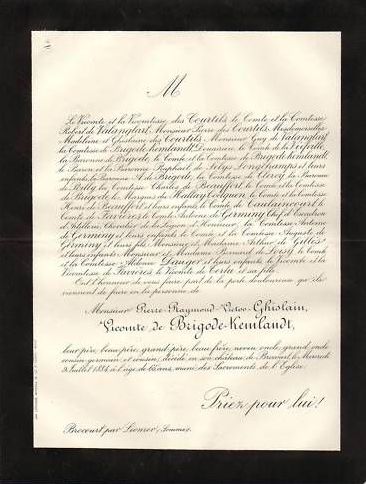 M
Le Vicomte et la Vicomtesse des Courtils, le Comte et la Comtesse
Robert de Valanglart, Monsieur Pierre des Courtils, Mesdemoiselles
Madeleine et Ghislaine des Courtils, Monsieur Guy de Valanglart,
la Comtesse de Brigode Kemlandt Douairière, le Comte de la
la Baronne de Brigode, le Comte et la Comtesse de Brigode Kemlandt,
le Baron et la Baronne Raphaël de Selys Longchamps et leurs
enfants, la Baronne de Brigode, le Comte de Clercy, la Baronne
de Rilly, la Comtesse Charles de Beauffort, le Comte et la Comtesse
de Brigode, la Marquise du Hallay Coëtquen, le Comte et la Comtesse
Henri de Beauffort et leurs enfants, le Comte de Caulaincourt, le
Comte de Savières, le Comte Antoine de Germiny, Chef d'Escadron
d'Artillerie, Chevalier de la Légion d'Honneur, la Comtesse Antoine
de Germiny et leurs enfants, le Comte et la Comtesse Auguste de
Germiny et leur fils, Monsieur et Madame Arthur de Gillès
et leurs enfants, Monsieur et Madame Fernand de Loisy, le Comte
et la Comtesse Danger et leurs enfants, le Vicomte et la
Vicomtesse de Savières, le Vicomte de et sa fille,
Ont l'honneur de vous faire part de la perte douloureuse qu'ils
viennent de faire en la personne de
Monsieur Pierre-Raymond-Victor-Ghislain,
Vicomte de Brigode-Kemlandt,
leur père, beau-père, grand-père, beau-frère, neveu, oncle, grand oncle
cousin-germain et cousin, décédé en son château de Brocourt, le Mercredi
9 Juillet 1884, à l'âge de ans, muni des Sacrements de l'Eglise.
Priez pour lui!
Brocourt par Liomer, (Somme).